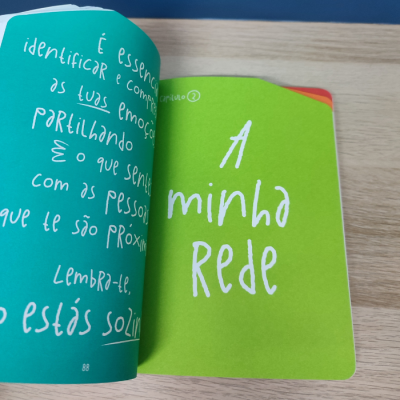 É essenc
identificar e comp
as tuas emoçõ
partilhando
o que sente
com as pessoas
que te são próxim
Lembra-te,
o estás sozin
88
2
A
minha
Rede